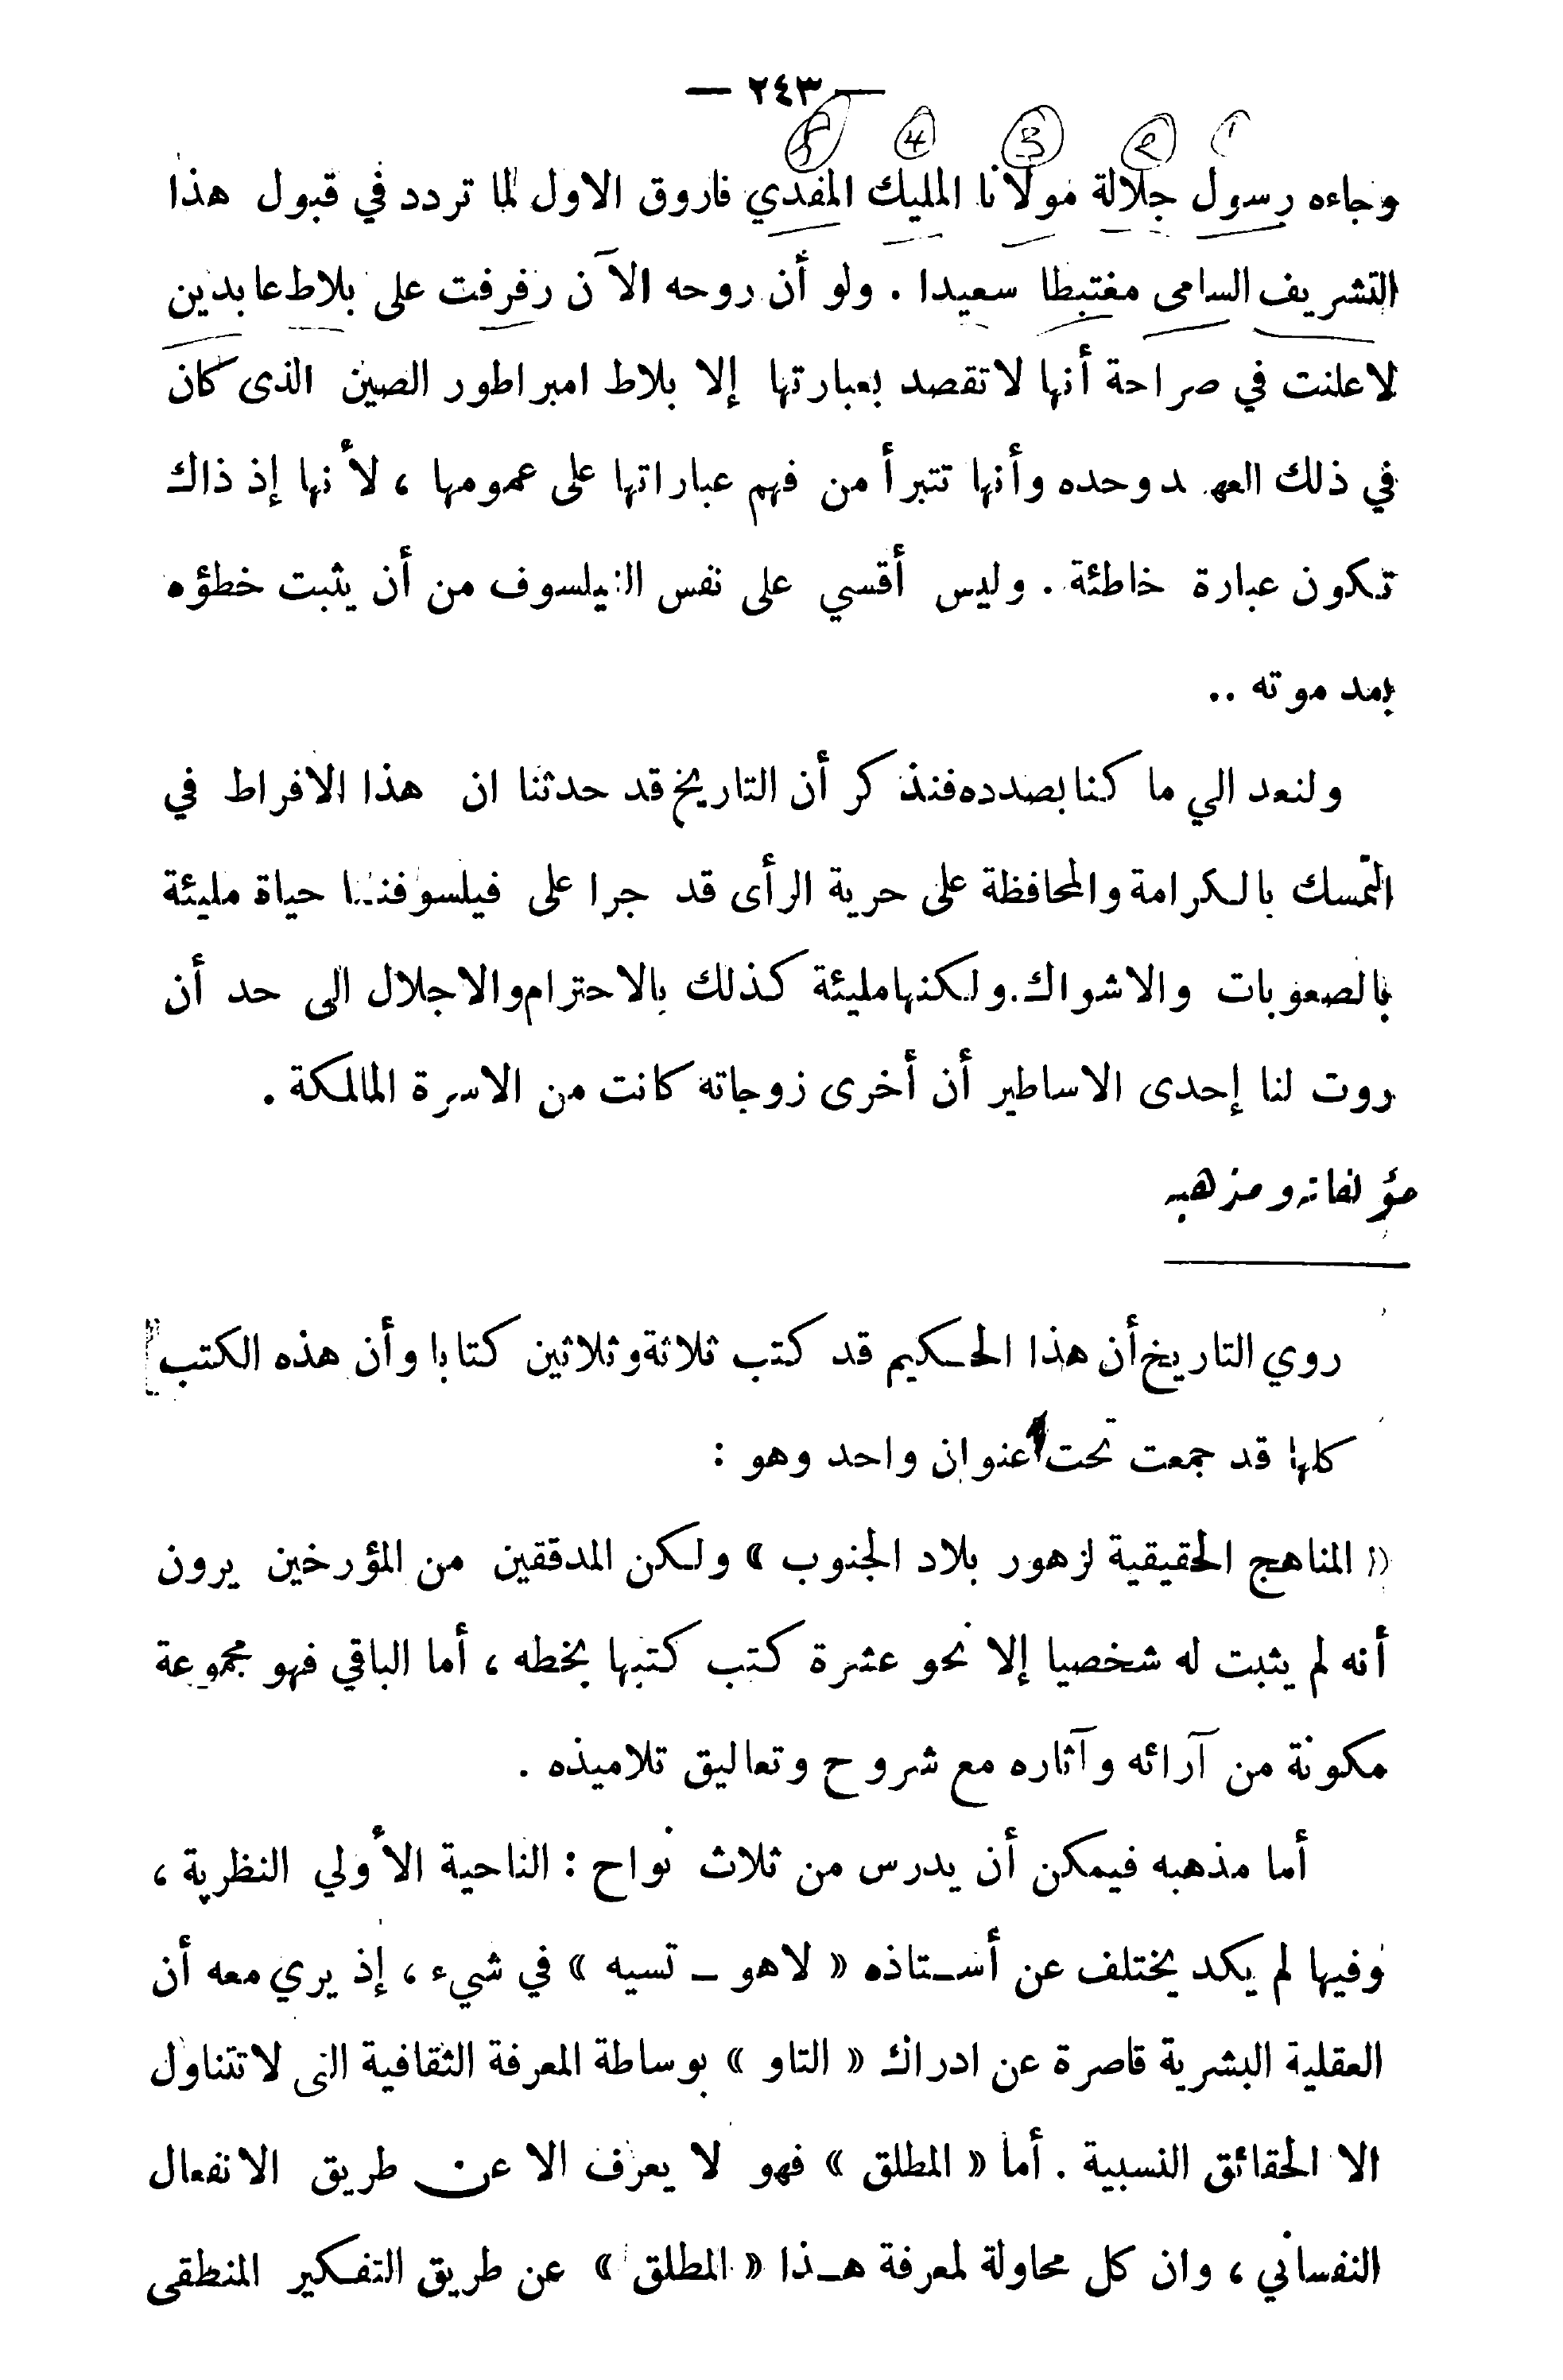 — ٢٤٣ —
1 2 3 4 5
وجاءه رسول جلالة مولانا المليك المفدي فاروق الاول لما تردد في قبول هذا
التشريف السامى مغتبطا سعيدا . ولو أن روحه الآن رفرفت على بلاط عابدين
لاعلنت في صراحة أنها لا تقصد بعبارتها إلا بلاط امبراطور الصين الذى كان
في ذلك العهد وحده وأنها تتبرأ من فهم عباراتها على عمومها ، لأنها إذ ذاك
تكون عبارة خاطئة . وليس أقسي على نفس الفيلسوف من أن يثبت خطؤه
بعد موته ..
ولنعد الي ما كنا بصدده فنذكر أن التاريخ قد حدثنا ان هذا الافراط في
التمسك بالكرامة والمحافظة على حرية الرأى قد جرا على فيلسوفنا حياة مليئة
بالصعوبات والاشواك . ولكنها مليئة كذلك بالاحترام والاجلال الى حد أن
روت لنا إحدى الاساطير أن أخرى زوجاته كانت من الاسرة المالكة .
مؤلفاته ومذهبه
روي التاريخ أن هذا الحكيم قد كتب ثلاثة وثلاثين كتابا وأن هذه الكتب
كلها قد جمعت تحت عنوان واحد وهو :
« المناهج الحقيقية لزهور بلاد الجنوب » ولكن المدققين من المؤرخين يرون
أنه لم يثبت له شخصيا إلا نحو عشرة كتب كتبها بخطه ، أما الباقي فهو مجموعة
مكونة من آرائه وآثاره مع شروح وتعاليق تلاميذه .
أما مذهبه فيمكن أن يدرس من ثلاث نواح : الناحية الأولي النظرية ،
وفيها لم يكد يختلف عن أستاذه « لاهو ـ تسيه » في شيء ، إذ يري معه أن
العقلية البشرية قاصرة عن ادراك « التاو » بوساطة المعرفة الثقافية التى لا تتناول
الا الحقائق النسبية . أما « المطلق » فهو لا يعرف الا عن طريق الانفعال
النفساني ، وان كل محاولة لمعرفة هذا « المطلق » عن طريق التفكير المنطقى